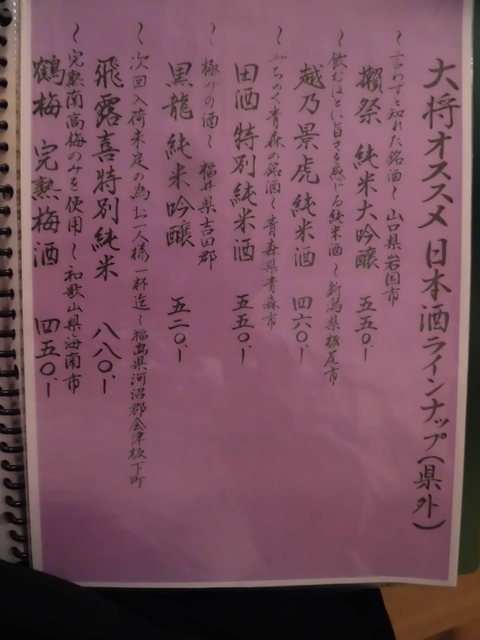 大将オススメ 日本酒ラインナップ(県外)
～言わずと知れた銘酒～ 山口県岩国市
獺祭 純米大吟醸 五五〇.ー
～飲むほどに旨さを感じる純米酒～新潟県栃尾市
越乃景虎 純米酒 四六〇.ー
～みちのく青森の銘酒～青森県青森市
田酒 特別純米酒 五五〇.ー
～極みの酒～ 福井県吉田郡
黒龍 純米吟醸 五二〇.ー
～次回入荷未定の為お一人様一杯迄～福島県河沼郡会津坂下町
飛露喜 特別純米 八八〇.ー
～完熟南高梅のみを使用～和歌山県海南市
鶴梅 完熟梅酒 四五〇.ー